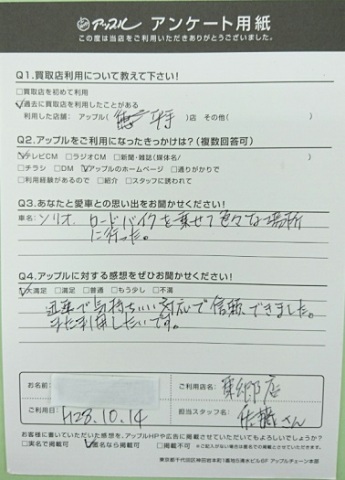 アップル アンケート用紙
この度は当店をご利用いただきありがとうございました。
Q1.買取店利用について教えて下さい!
□買取店を初めて利用
☑過去に買取店を利用したことがある
利用した店舗: アップル( )店 その他( )
Q2.アップルをご利用になったきっかけは?(複数回答可)
☑テレビCM □ラジオCM □新聞・雑誌(媒体名/ )
□チラシ □DM ☑アップルのホームページ □通りがかりで
□利用経験があるので □紹介 □スタッフに誘われて
Q3.あなたと愛車との思い出をお聞かせください!
車名: ソリオ ロードバイクを乗せて色々な場所
に行った。
Q4.アップルに対する感想をぜひお聞かせください!
☑大満足 □満足 □普通 □もう少し □不満
迅速で気持ちいい対応で信頼できました。
また利用したいです。
お名前:
ご利用店名: 東郷店
ご利用日: H28.10.14
担当スタッフ名: 佐藤さん
お客様に書いていただいた感想を、アップルHPや広告に掲載させていただいてもよろしいでしょうか?
□実名で掲載可 ☑匿名なら掲載可 □掲載不可
東京都千代田区神田岩本町1番地5清水ビル6F アップルチェーン本部